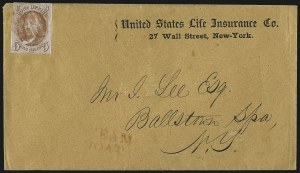 United States Life Insurance Co.
27 Wall Street, New-York.
Mr I. Lee Esq.
Ballstown Spa,
N.Y.